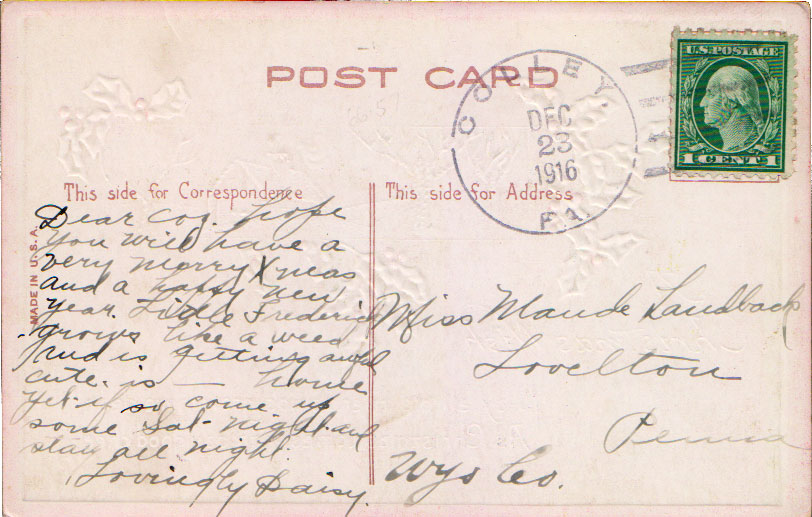 POST CARD
COLLEY,
DEC
23
1916
PA.
U.S. POSTAGE
1 CENT 1
This side for Correspondence
This side for Address
MADE IN U.S.A.
Dear coz. hope
you will have a
very merry Xmas
and a happy new
year. Little Frederick
grows like a weed
and is getting awful
cute. is — home
yet. if so come up
some Sat- night and
stay all night.
Lovingly Daisy.
Miss Maude Landback
Lovelton
Penna
Wyo Co.